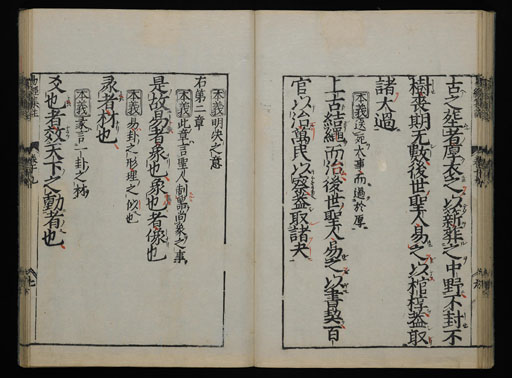 古之葬者厚衣之以薪葬之中野不封不
樹喪期无數後世聖人易之以棺椁蓋取
諸大過
本義送死大事而過於厚
上古結繩而治後世聖人易之以書契百
官以治萬民以察蓋取諸夬
本義明决之意
右第二章
本義此章言聖人制器尚象之事
是故易者象也象也者像也
本義易卦之形理之似也
彖者材也
本義彖言一卦之材
爻也者效天下之動者也